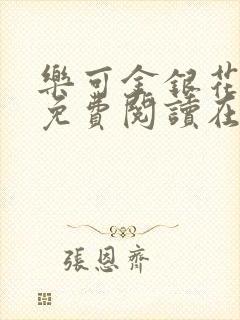 樂可金銀花
免費閱讀在
張恩齊